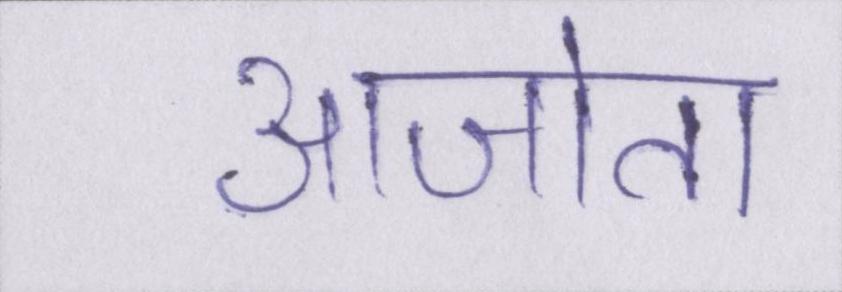 आजोता